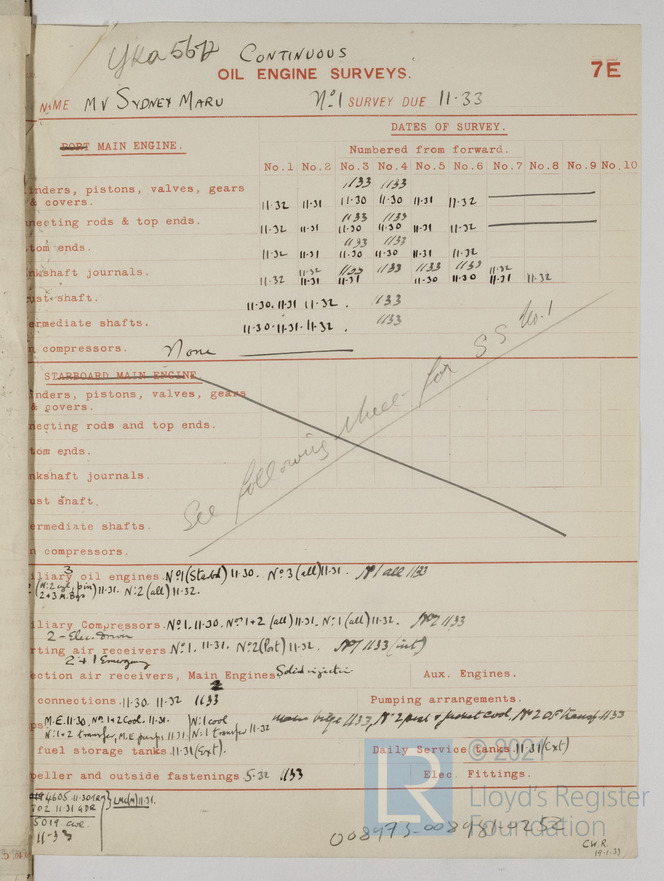 Yka 5672 CONTINUOUS
OIL ENGINE SURVEYS.
7E
NAME MV SYDNEY MARU No.1 SURVEY DUE 11.33
DATES OF SURVEY.
PORT MAIN ENGINE. Numbered from forward.
No.1 No.2 No.3 No.4 No.5 No.6 No.7 No.8 No.9 No.10
1133 1133
inders, pistons, valves, gears
& covers. 11.32 11.31 11.30 11.30 11.31 11.32
1133 1133
necting rods & top ends. 11.32 11.31 11.30 11.30 11.31 11.32
1133 1133
tom ends. 11.32 11.31 11.30 11.30 11.31 11.32
11.32 1133 1133 1133 1133 11.32
nkshaft journals. 11.32 11.31 11.31 11.30 11.30 11.31 11.32
ust shaft. 11.30. 11.31 11.32. 1133
ermediate shafts. 11.30.11.31.11.32. 1133
n compressors. None
STARBOARD MAIN ENGINE
inders, pistons, valves, gears
& covers.
necting rods and top ends.
tom ends.
nkshaft journals.
ust shaft.
ermediate shafts.
n compressors.
See following sheet for SS No.1
3
iliary oil engines. No.1 (Starbd) 11.30. No.3 (all) 11.31. No 1 all 1133
2+3 11.31. No.2 (all) 11.32.
iliary Compressors. No.1. 11.30. No.1+2 (all) 11.31. No.1 (all) 11.32. No2 1133
2 - Elec. Driven
rting air receivers No.1. 11.31. No2 (Port) 11.32. No1 1133 (int)
2 + 1 Emergency
ection air receivers, Main Engines Solid injection Aux. Engines.
connections. 11.30. 11.32 1133 Pumping arrangements.
ps M.E. 11.30, No.1+2 Cool. 11.31. No.1 cool main bilge 1133, No 2 port & jacket cool, No 2 O.F. transf. 1133
No.1+2 transfer, M.E. pumps 11.31 No.1 transfer 11.32
fuel storage tanks. 11.31 (Ext). Daily Service tanks 11.31 (Ext)
peller and outside fastenings 5.32 1133 Elec. Fittings.
4605 11.30
702 11.31 GDR LMC(M) 11.31.
5019 CWR
11-33
008973-008981-0252
C.W.R.
19.1.33
© 2021
LR
Lloyd's Register
Foundation